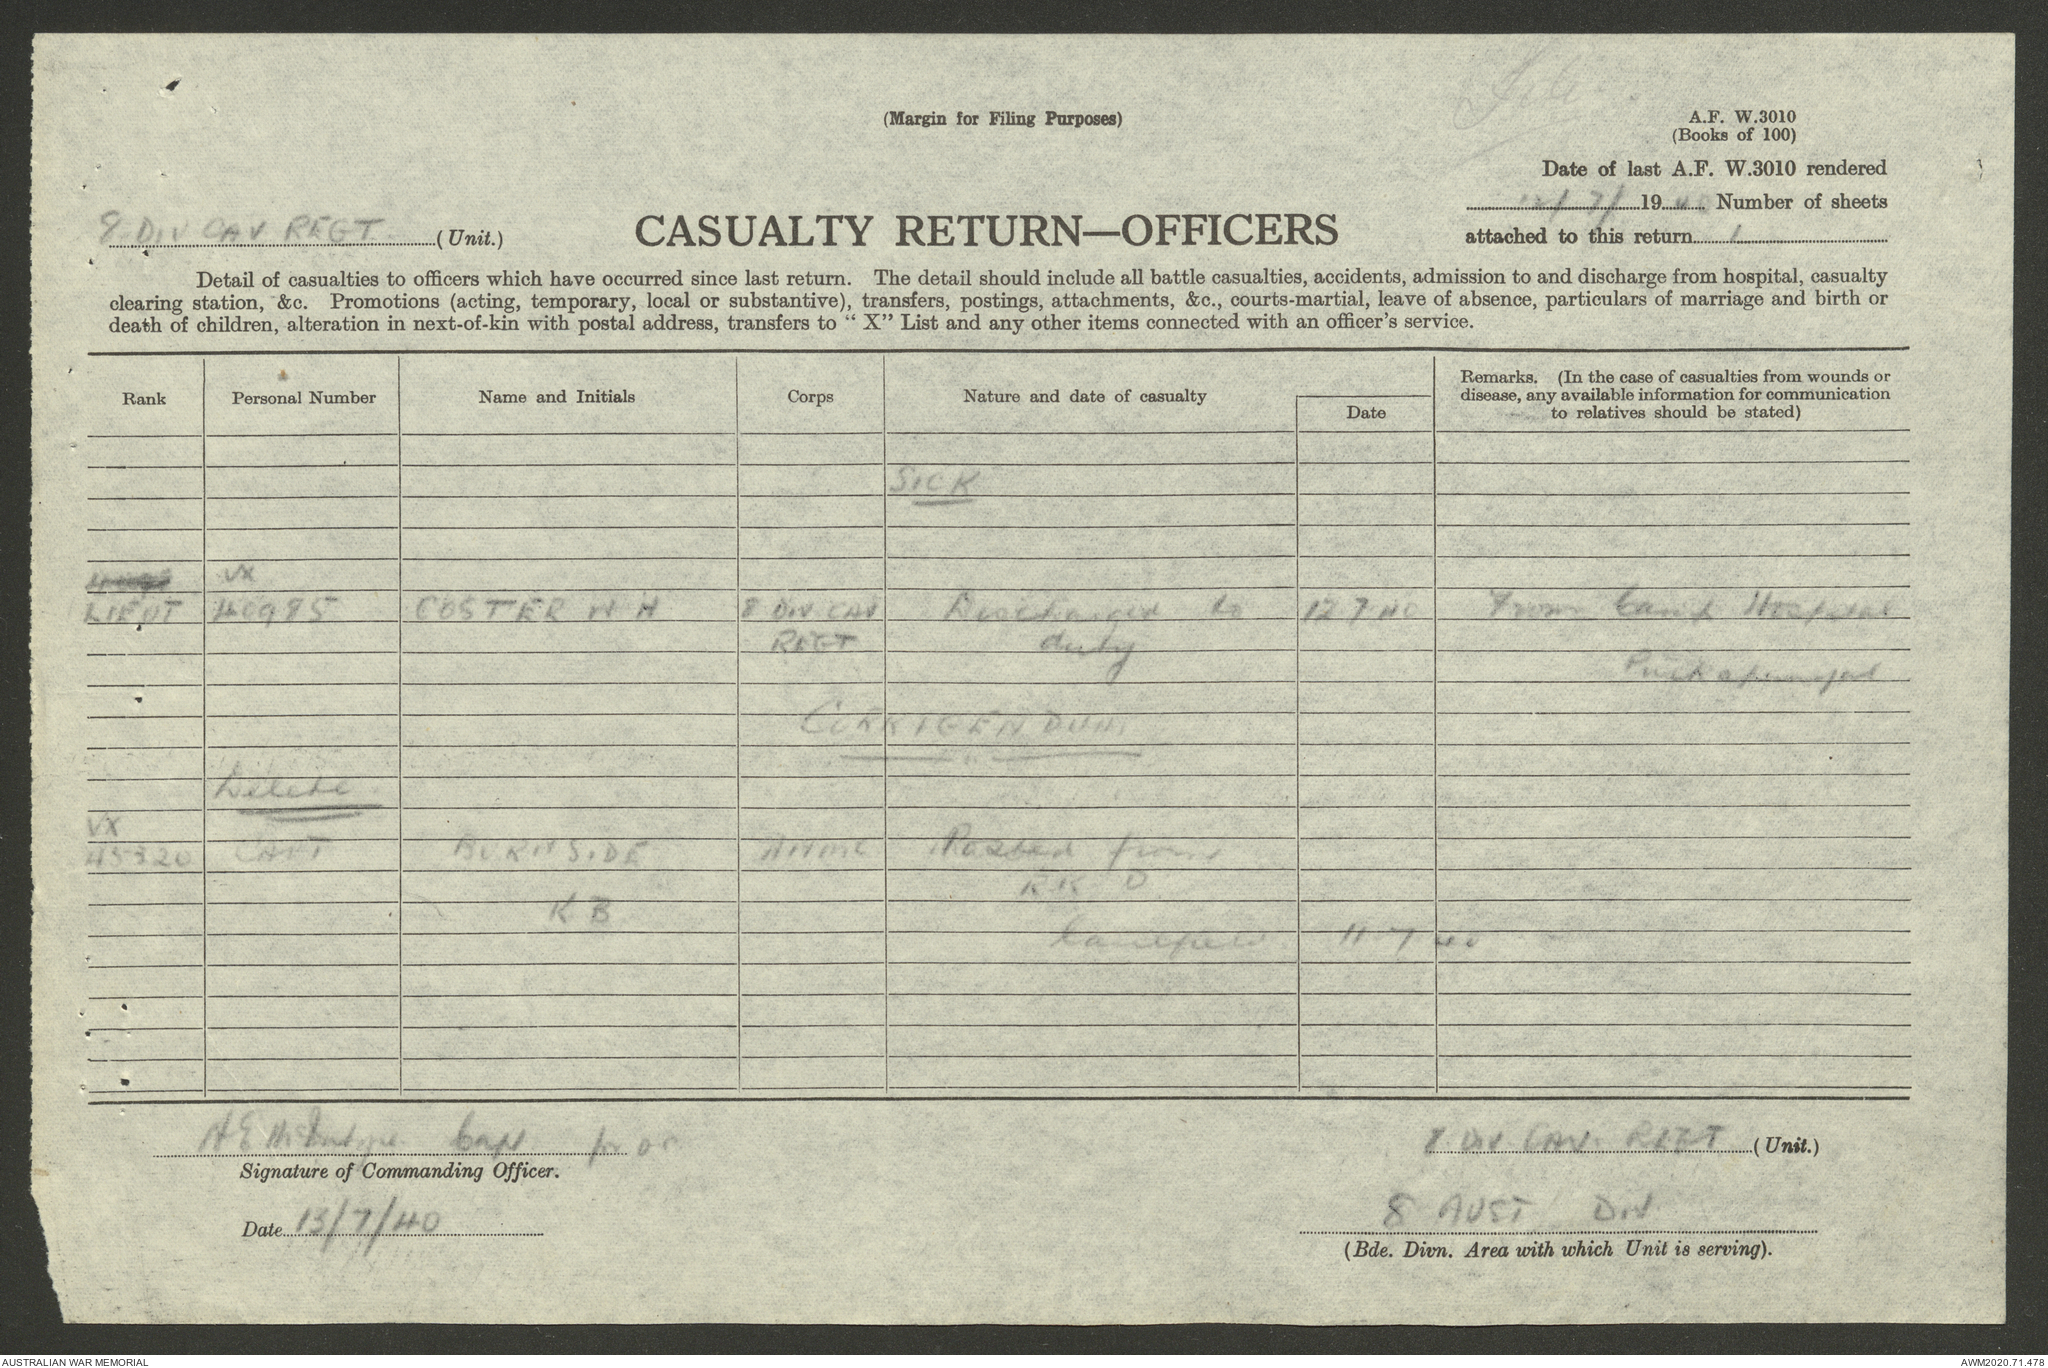 File
(Margin for Filing Purposes)
A.F. W.3010
(Books of 100)
Date of last A.F. W.3010 rendered
12/7/1940 Number of sheets
attached to this return 1
8 DIV CAV REGT (Unit.)
CASUALTY RETURN—OFFICERS
Detail of casualties to officers which have occurred since last return. The detail should include all battle casualties, accidents, admission to and discharge from hospital, casualty
clearing station, &c. Promotions (acting, temporary, local or substantive), transfers, postings, attachments, &c., courts-martial, leave of absence, particulars of marriage and birth or
death of children, alteration in next-of-kin with postal address, transfers to "X" List and any other items connected with an officer's service.
Rank Personal Number Name and Initials Corps Nature and date of casualty Date Remarks. (In the case of casualties from wounds or
disease, any available information for communication
to relatives should be stated)
SICK
VX
LIEUT 40985 COSTER W H 8 DIV CAV Discharged to 12 7 40 From Camp Hospital
REGT duty
Puckapunyal
CORRIGENDUM
Delete
VX
45320 CAPT BURNSIDE AAMC Marched from
R R D
K B
Caulfield 11-7-40
A E McIntyre Capt for OC
Signature of Commanding Officer.
8 DIV CAV. REGT (Unit.)
Date 13/7/40
8 AUST DIV
(Bde. Divn. Area with which Unit is serving).
AUSTRALIAN WAR MEMORIAL
AWM2020.71.478